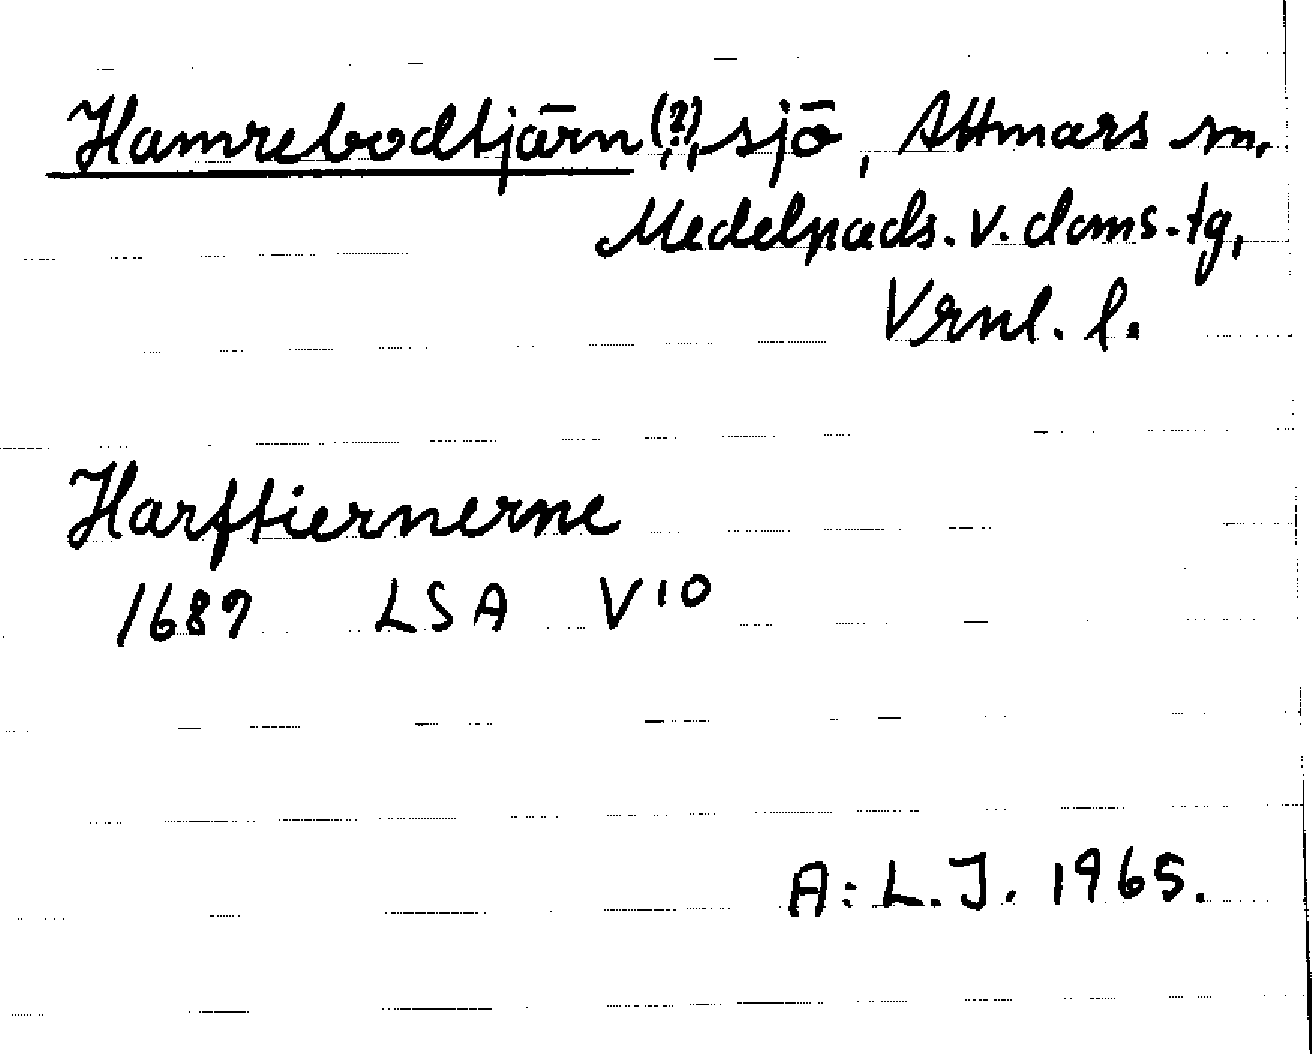 Hamrebodtjärn (?), sjö, Attmars sn.
Medelpads. v. doms. tg,
Vrnl. l.
Harftiernerne
1687 LSA V10
A: L.J. 1965.